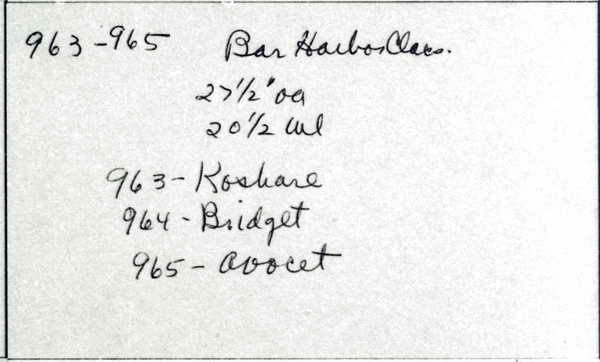 963-965 Bar Harbor Class.
27 1/2" oa
20 1/2 wl
963 - Koshare
964 - Bridget
965 - Avocet